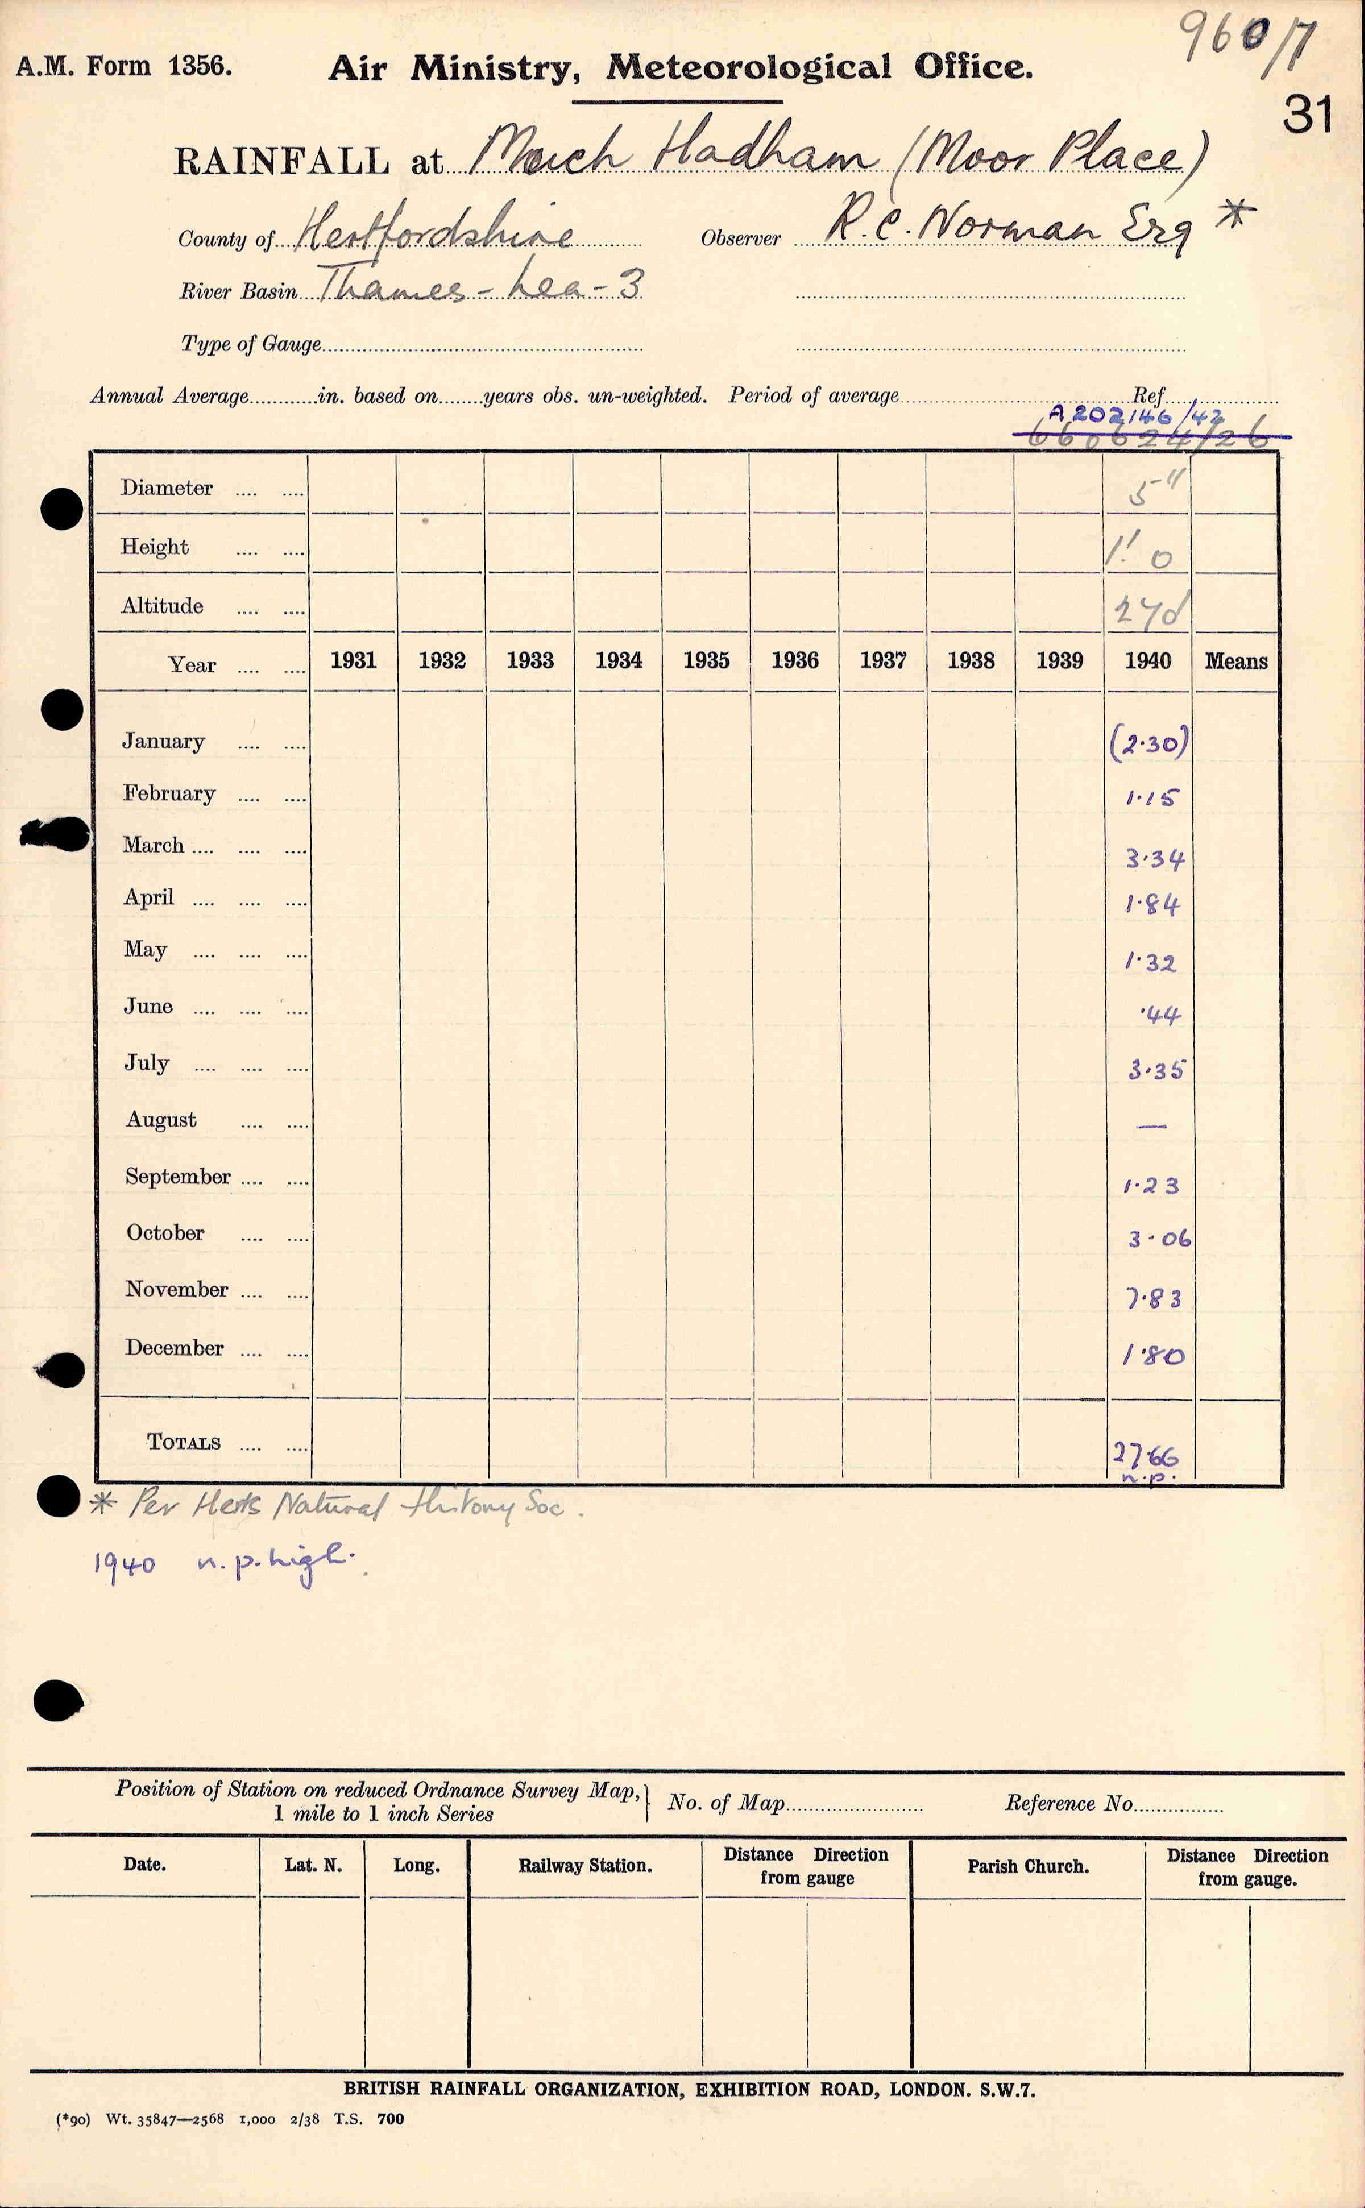 960/7
A.M. Form 1356. Air Ministry, Meteorological Office.
31
RAINFALL at Much Hadham (Moor Place)
County of Hertfordshire Observer R.C. Norman Esq *
River Basin Thames - Lea - 3
Type of Gauge
Annual Average in. based on years obs. un-weighted. Period of average Ref.
A 202146/42
660624/26
Diameter 5"
Height 1' 0
Altitude
Year 1931 1932 1933 1934 1935 1936 1937 1938 1939 1940 Means
January (2·30)
February 1·15
March 3·34
April 1·84
May 1·32
June ·44
July 3·35
August —
September 1·23
October 3·06
November 7·83
December 1·80
TOTALS 27·66
n.p.
* Per Herts Natural History Soc.
1940 n.p. high.
Position of Station on reduced Ordnance Survey Map, 1 mile to 1 inch Series } No. of Map Reference No.
Date. Lat. N. Long. Railway Station. Distance Direction from gauge Parish Church. Distance Direction from gauge.
BRITISH RAINFALL ORGANIZATION, EXHIBITION ROAD, LONDON. S.W.7.
(*90) Wt. 35847—2568 1,000 2/38 T.S. 700